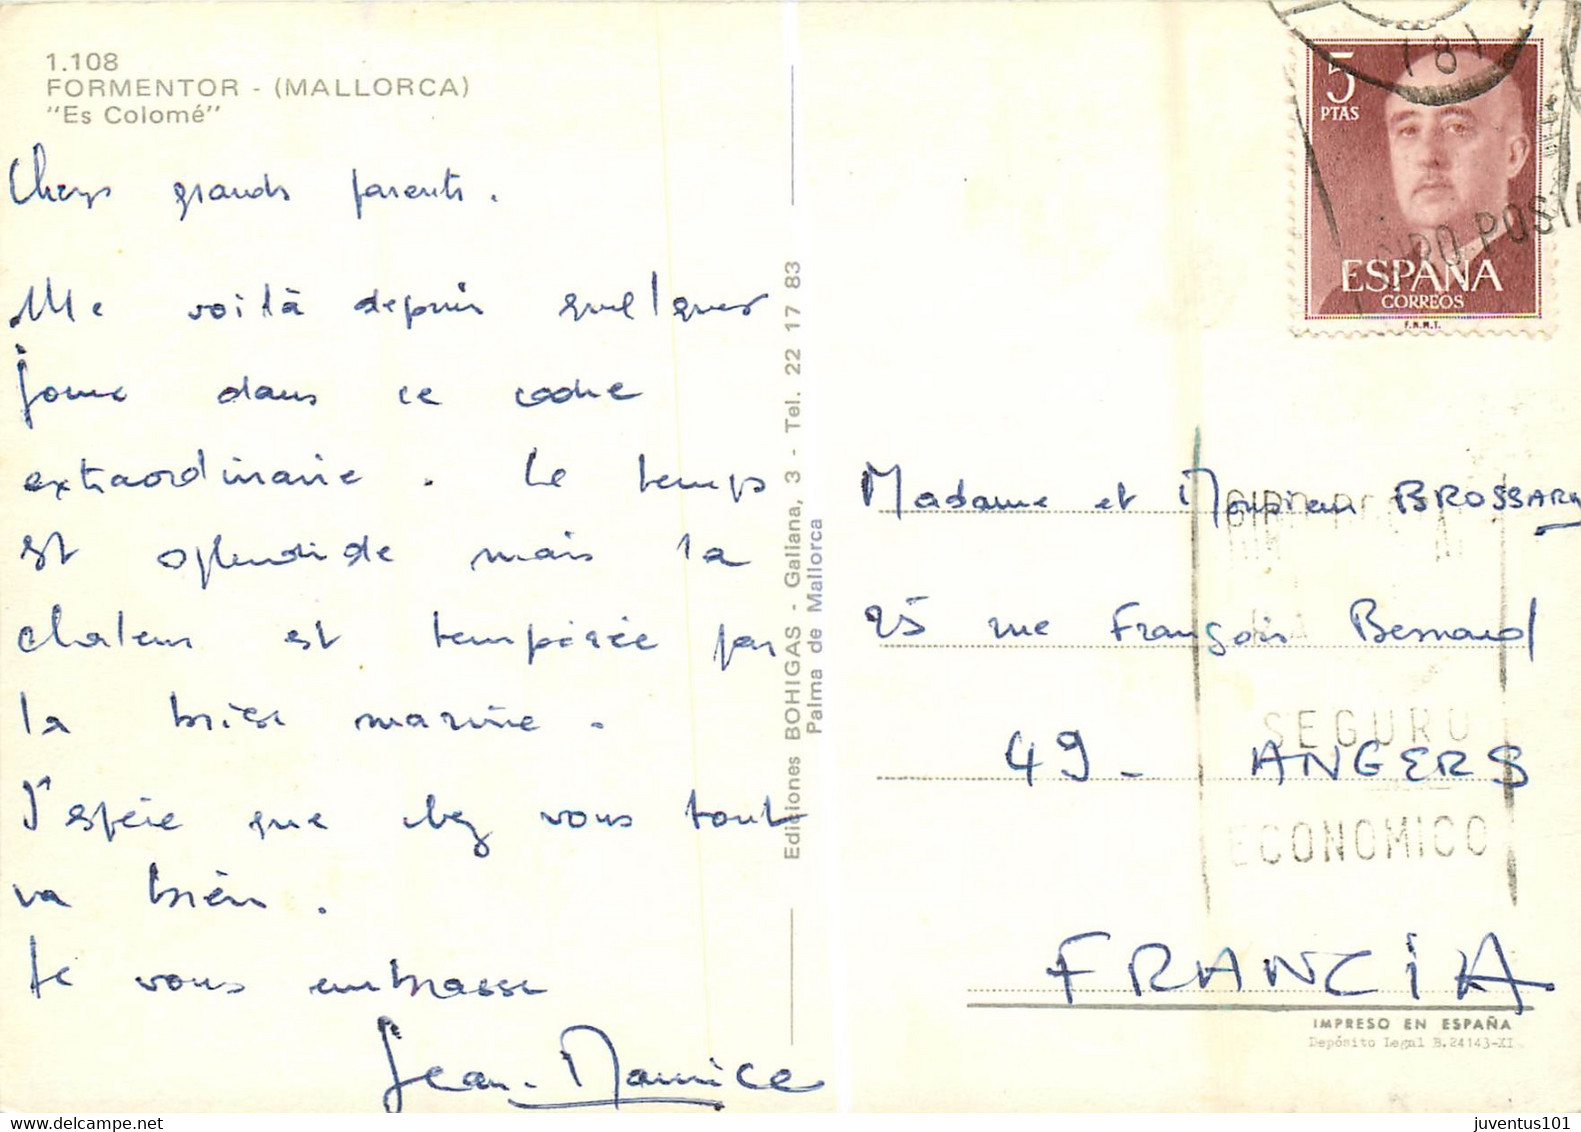 1.108
FORMENTOR - (MALLORCA)
"Es Colomé"
Chers grands parents.
Me voilà depuis quelques
jours dans ce cadre
extraordinaire. Le temps
est splendide mais la
chaleur est tempérée par
la brise marine.
J'espère que chez vous tout
va bien.
Je vous embrasse
Jean-Maurice
Ediciones BOHIGAS - Galiana, 3 - Tel. 22 17 83
Palma de Mallorca
(8)
5
PTAS
GIRO POSTA
ESPAÑA
CORREOS
F.N.M.T.
Madame et Monsieur BROSSARD
25 rue François Bernard
SEGURO
49 - ANGERS
ECONOMICO
FRANCIA
IMPRESO EN ESPAÑA
Depósito Legal B.24143-XI
www.delcampe.net
juventus101